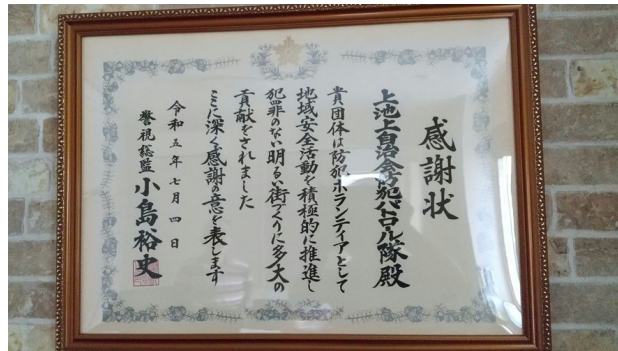 感謝状
上池上自治会防犯パトロール隊殿
貴団体は防犯ボランティアとして
地域安全活動を積極的に推進し
犯罪のない明るい街づくりに多大の
貢献をされました
ここに深く感謝の意を表します
令和五年七月四日
警視総監 小島裕史